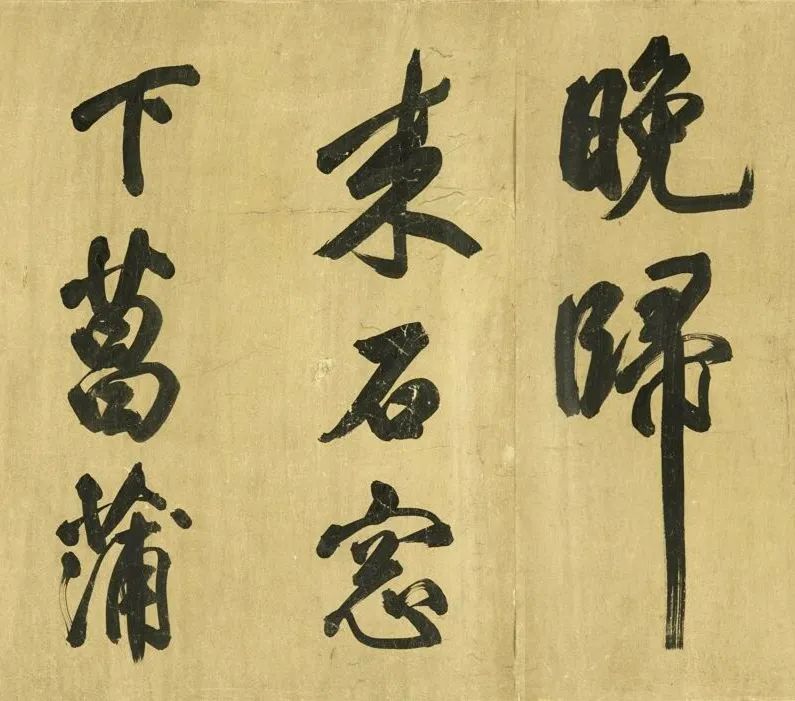 晚歸
来石窓
下菖蒲